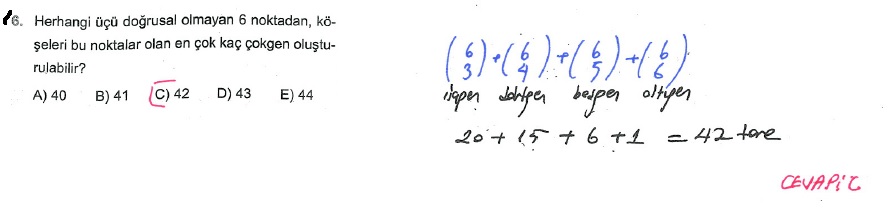 16. Herhangi üçü doğrusal olmayan 6 noktadan, kö-
şeleri bu noktalar olan en çok kaç çokgen oluştu-
rulabilir?
A) 40 B) 41 C) 42 D) 43 E) 44
(6 3) + (6 4) + (6 5) + (6 6)
üçgen dörtgen beşgen altıgen
20 + 15 + 6 + 1 = 42 tane
CEVAP: C